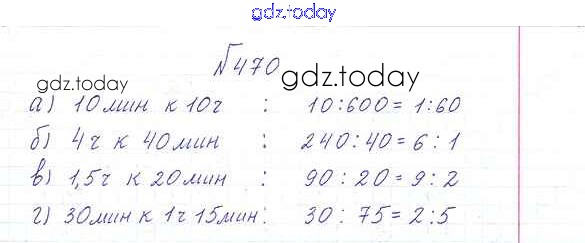 gdz.today
№470
gdz.today gdz.today
а) 10 мин к 10 ч : 10:600 = 1:60
б) 4 ч к 40 мин : 240:40 = 6:1
в) 1,5 ч к 20 мин : 90:20 = 9:2
г) 30 мин к 1 ч 15 мин: 30:75 = 2:5